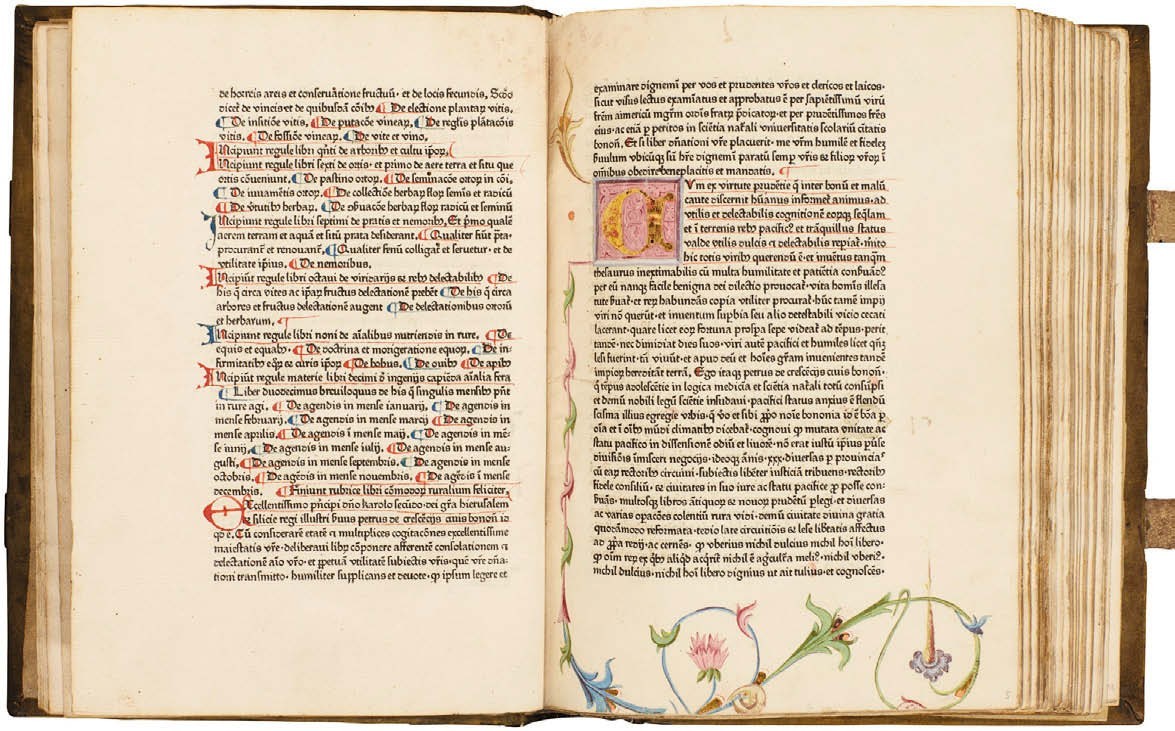 de horreis areis et conseruatione fructuū · et de locis fecundis. Scđo
dicet de vineis et de quibusdā cōibꝫ De electione plantaꝝ vitis.
De insitiōe vitis. De putacōe vineaꝝ. De reglis plātacōis
vitis. De fossiōe vineaꝝ. De vite et vino.
Incipiunt regule libri qn̄ti de arboribꝫ et cultu ip̄oꝝ.
Incipiunt regule libri sexti de ortis · et primo de aere terra et situ que
ortis cōueniunt. De pastino ortoꝝ. De seminacōe ortoꝝ in cōi.
De iuuamētis ortoꝝ. De collectiōe herbaꝝ floꝝ semīs et radicū
De v̄tutibꝫ herbaꝝ. De obseruacōe herbaꝝ floꝝ radicū et seminū
Incipiunt regule libri septimi de pratis et nemoribꝫ. Et p̄mo qualē
aerem terram et aquā et sitū prata desiderant. Qualiter fiūt p̄ta ·
procurant̄ et renouant̄. Qualiter fenū colligat̄ et seruetur · et de
vtilitate ip̄ius. De nemoribus.
Incipiunt regule libri octaui de viridarijs & rebꝫ delectabilibꝫ De
his q̄ circa vites ac ip̄aꝝ fructus delectationē prebēt De his q̄ circa
arbores et fructus delectationē augent De delectationibus ortoꝝ
et herbarum.
Incipiunt regule libri noni de aīalibus nutriendis in rure. De
equis et equabꝫ. De doctrina et morigeratione equoꝝ. De in-
firmitatibꝫ eqꝝ & curis ip̄oꝝ De bobus. De ouibꝫ De apibꝫ
Incipiūt regule materie libri decimi đ ingenijs capiēđa aīalia fera
Liber duodecimus breuiloquus de his q̄ singulis mensibꝫ sūt
in rure agē. De agendis in mense ianuarij. De agendis in
mense februarij. De agendis in mense marcij De agendis in
mense aprilis. De agendis ī mense maij. De agendis in mē-
se iunij. De agendis in mense iulij. De agendis in mense au-
gusti. De agendis in mense septembris. De agendis in mense
octobris. De agēdis in mense nouembris. De agēdis ī mense
decembris. Finiunt rubrice libri cōmodoꝝ ruralium feliciter.
Excellentissimo p̄ncipi dn̄o karolo secūdo · dei gr̄a hierusalem
& sicilie regi illustri suus petrus de crescēcijs ciuis bonoñ id
qđ e. Cū considerarē etatē & multiplices cogitacōnes excellentissime
maiestatis vr̄e · deliberaui libꝝ cōponere afferentē consolationem &
delectationē aīo vr̄o · et perpetuā vtilitatē subiectis vr̄is · quē vr̄e dn̄a-
tioni transmitto · humiliter supplicans et deuote · ꝙ ipsum legere et
examinare dignemī per vos et prudentes vr̄os et clericos et laicos ·
sicut visus lectus examīatus et approbatus ē per sapiētissimū virū
fr̄em aimericū mgr̄m ordīs fratꝝ p̄dicatoꝝ · et per prudētissimos fr̄es
eius · ac etiā ꝑ peritos in sciētia nat̄ali vniuersitatis scolariū citatis
bonoñ. Et si liber dn̄ationi vr̄e placuerit · me vr̄m humilē et fidelez
seruulum vbicūqꝫ siū hr̄e dignemī paratū semꝑ vr̄is & filioꝝ vr̄oꝝ ī
omnibus obedire beneplacitis et mandatis.
CVm ex virtute prudētie q̄ inter bonū et malū
caute discernit hūanus informet̄ animus · ad
vtilis et delectabilis cognitionē eorūqꝫ seq̄lam
et ī terrenis rebꝫ pacific⁹ et trāquillus status
valde vtilis dulcis & delectabilis repiat̄ · m̄ito
hic totis viribꝫ querendū ē · et inuētus tanqꝫ
thesaurus inextimabilis cū multa humilitate et patiētia conseruād⁹
per eū nanqꝫ facile benigna dei dilectio prouocat̄ · vita homīs illesa
tute seruat̄ · et reꝝ habundās copia vtiliter procurat̄ · hūc tamē impij
viri nō querūt · et inuentum supbia seu alio detestabili vicio cecati
lacerant · quare licet eoꝝ fortuna prospa sepe videat̄ ad tēpus · perit
tandē · nec dimidiāt dies suos · viri autē pacifici et humiles licet qn̄qꝫ
lesi fuerint · tn̄ viuūt · et apud deū et hoīes gr̄am inuenientes tandē
impioꝝ hereditāt terrā. Ego itaqꝫ petrus de crescēcijs ciuis bonoñ ·
q̄ tēpus adolescētie in logica medicīa et sciētia nat̄ali totū consūpsi
et demū nobili legū sciētie insudaui · pacifici status anxius ē flendū
scisma illius egregie vrbis · q̄ vo et sibi ꝓpo noīe bononia id ē boa ꝑ
oīa et ī oībꝫ mūdi climatibꝫ dicebat̄ · cognoui ꝙ mutata vnitate ac
statu pacifico in dissensionē odiū et liuorē · nō erat iustū ip̄ius puse
diuisiōis īmisceri negocijs · ideoqꝫ ānis · xxx · diuersas ꝑ prouincias
cū eaꝝ rectoribꝫ circuiui · subiectis libēter iusticiā tribuens · rectoribꝫ
fidele consiliū · & ciuitates in suo iure ac statu pacifice ꝓ posse con-
seruās · multosqꝫ libros ātiquoꝝ & nouoꝝ prudētū plegi · et diuersas
ac varias opacōes colentiū rura vidi · demū ciuitate diuina gratia
quodāmodo reformata · tedio late circuitiōis & lese lib̄tatis affectus
ad ꝓpa redij · ac cernēs · ꝙ vberius nichil dulcius nichil hoī libero ·
ꝙ oīm reꝝ ex qͥbꝫ aliqd acqrit̄ nichil ē agⁱculr̄a meli⁹ · nichil vberi⁹ ·
nichil dulcius · nichil hoī libero dignius ut ait tulius · et cognoscēs ·